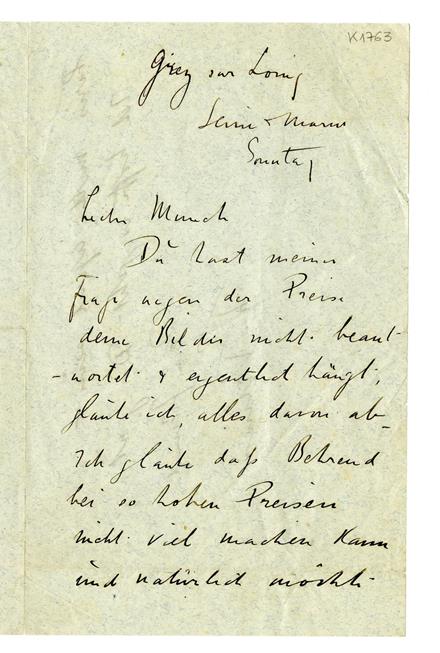 K1763
Grez sur Loing
Seine & Marne
Sonntag
Lieber Munch
Du hast meine
Frage wegen der Preise
deine Bilder nicht beant-
-wortet & eigentlich hängt,
glaube ich, alles davon ab-
Ich glaube daß Behrend
bei so hohen Preisen
nicht viel machen kann
und natürlich möchte